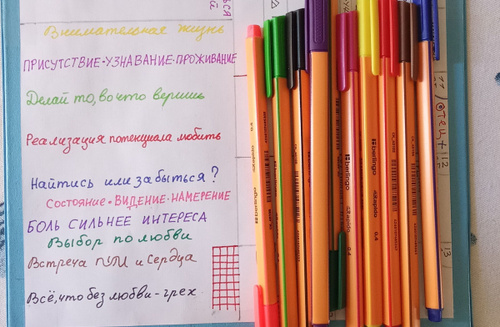 Внимательная жизнь
ПРИСУТСТВИЕ-УЗНАВАНИЕ-ПРОЖИВАНИЕ
Делай то, во что веришь
Реализация потенциала любить
Найтись или забыться?
СОСТОЯНИЕ • ВИДЕНИЕ • НАМЕРЕНИЕ
БОЛЬ СИЛЬНЕЕ ИНТЕРЕСА
Выбор по любви
Встреча ПУЛИ и Сердца
Всё, что без любви - грех
berlingo
berlingo
berlingo